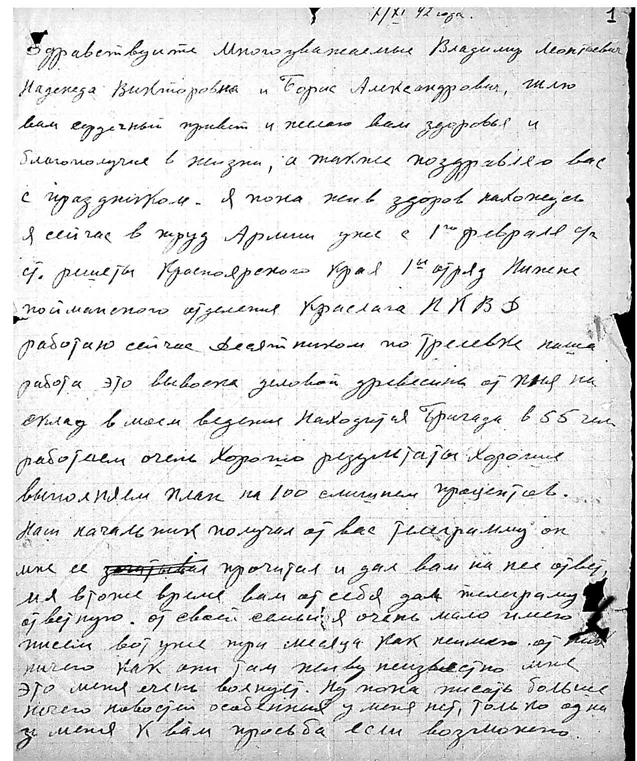 X/XI 42 года. 1
Здравствуйте Многоуважаемые Владимир Леонтьевич
Надежда Викторовна и Борис Александрович, шлю
вам сердечный привет и желаю вам здоровья и
благополучия в жизни, а также поздравляю вас
с праздником. Я пока жив здоров нахожусь
я сейчас в труд Армии уже с 1го февраля
ст. решеты Красноярского Края 1й отряд Нижне
пойманского отделения Краслага НКВД
работаю сейчас десятником по трелевке наша
работа это вывоска деловой древесины от пня на
склад в моем ведение Находится Бригада в 55 чел
работаем очень Хорошо результаты хорошие
выполняем план на 100 слишнем процентов.
Наш начальник получил от вас телеграмму он
мне ее прочитал и дал вам на нее ответ,
и я в тоже время вам от себя дал телеграму
ответную. от своей семьи я очень мало имею
писем вот уже три месяца как неимею от них
ничего как они там живу неизвестно мне
это меня очень волнует. Ну пока писать больше
ничего новостей особенных у меня нет, только одна
у меня к вам просьба если возможно.